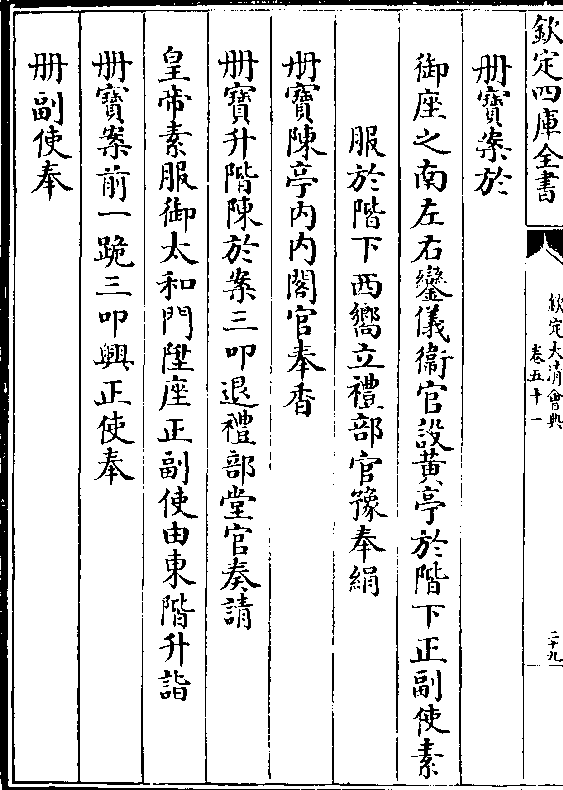 欽定四庫全書
欽定大清會典
卷五十一
二十九
册寶案於
御座之南左右鑾儀衞官設黄亭於階下正副使素
服於階下西嚮立禮部官豫奉絹
册寶陳亭内内閣官奉香
册寶升階陳於案三叩退禮部堂官奏請
皇帝素服御太和門陞座正副使由東階升詣
册寶案前一跪三叩興正使奉
册副使奉